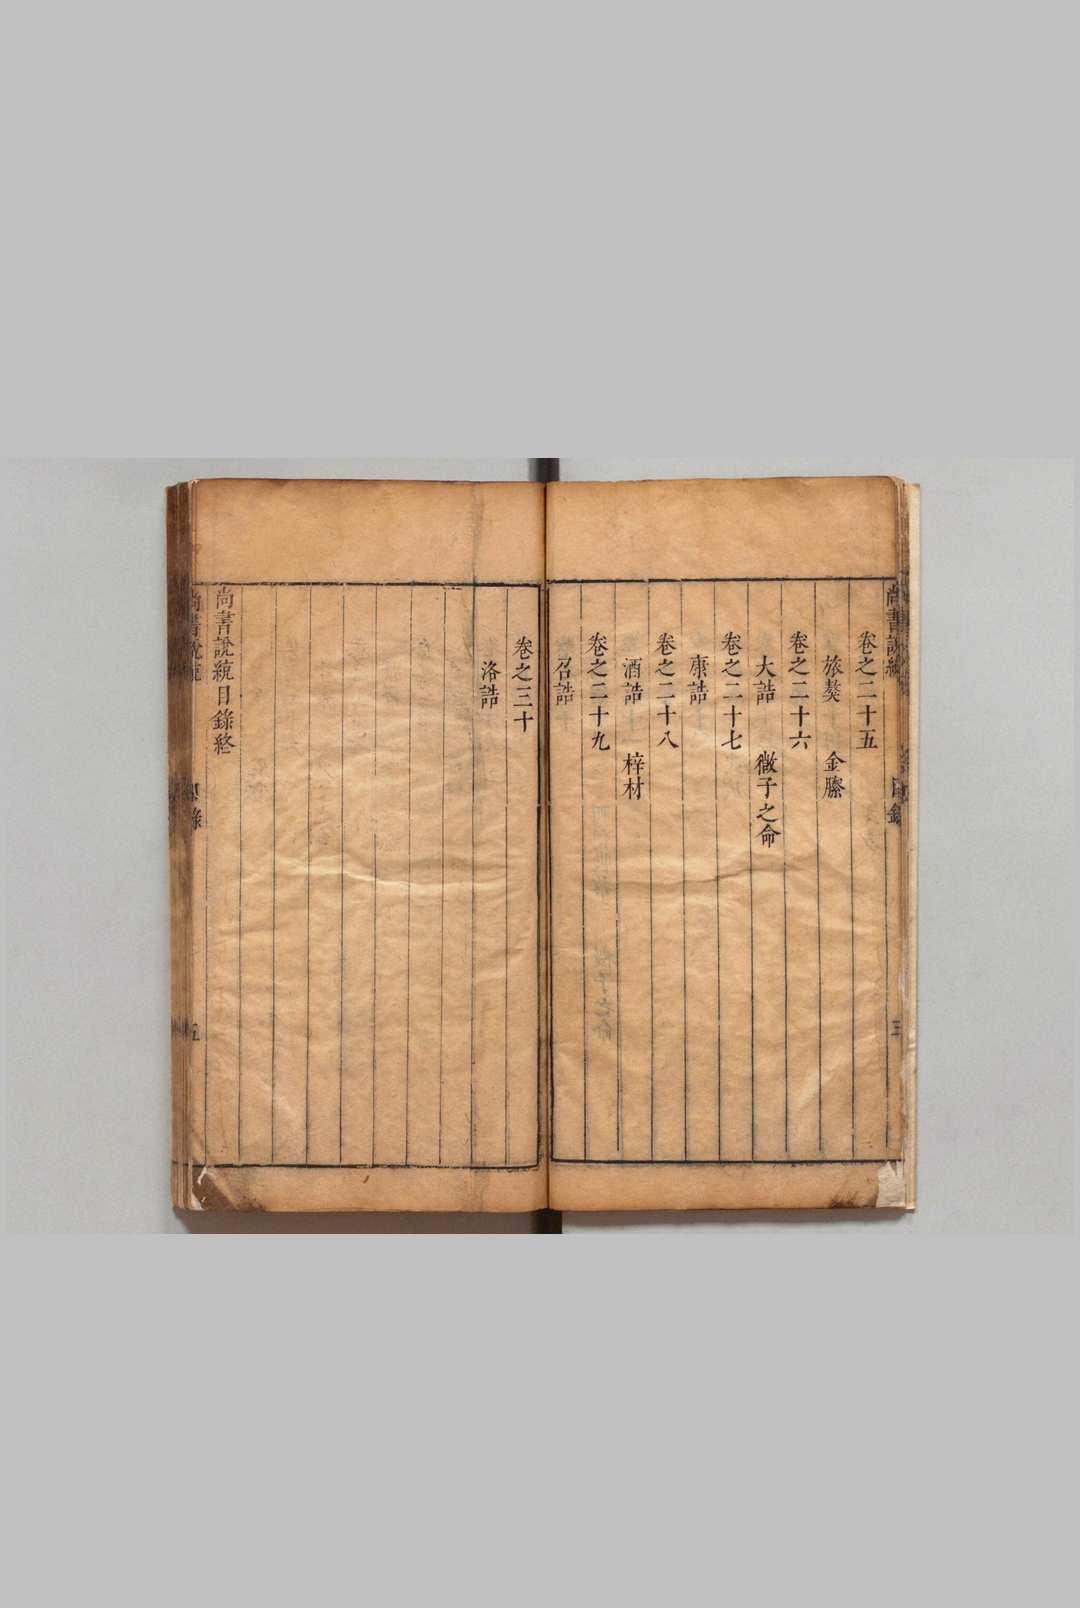 尚書說統
目錄
三
卷之二十五
旅獒　金縢
卷之二十六
大誥　微子之命
卷之二十七
康誥
卷之二十八
酒誥　梓材
卷之二十九
召誥
卷之三十
洛誥
尚書說統目錄終
尚書說統